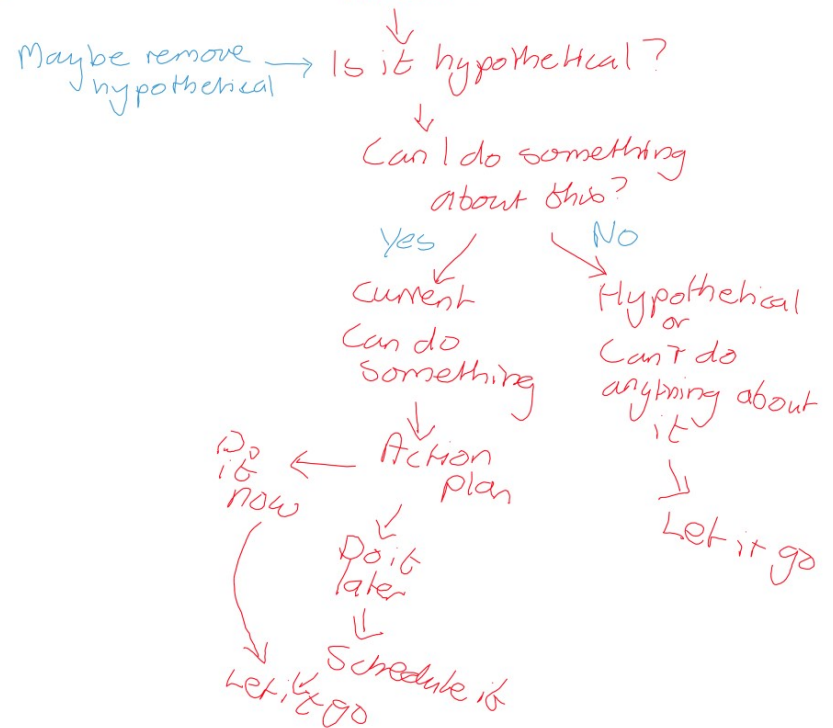 Maybe remove
hypothetical
Is it hypothetical?
Can I do something
about this?
Yes
No
Current
Can do
something
Hypothetical
or
Can't do
anything about
it
Action
plan
Do
it
now
Do it
later
Let it go
Schedule it
Let it go